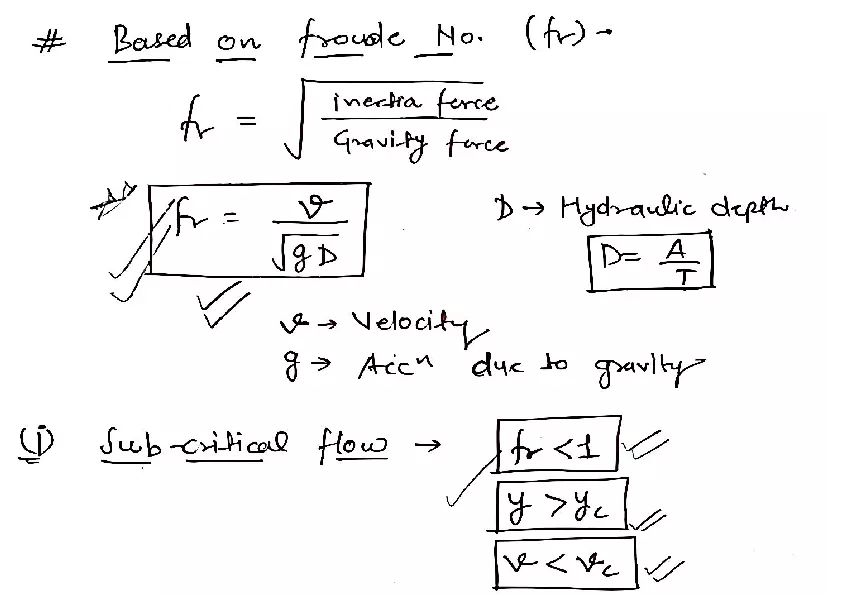 # Based on froude No. (fr) -
fr = √(inertia force / Gravity force)
fr = v / √(gD)
D → Hydraulic depth
D = A / T
v → Velocity
g → Accn due to gravity
(1) Sub-critical flow → fr < 1
y > yc
v < vc